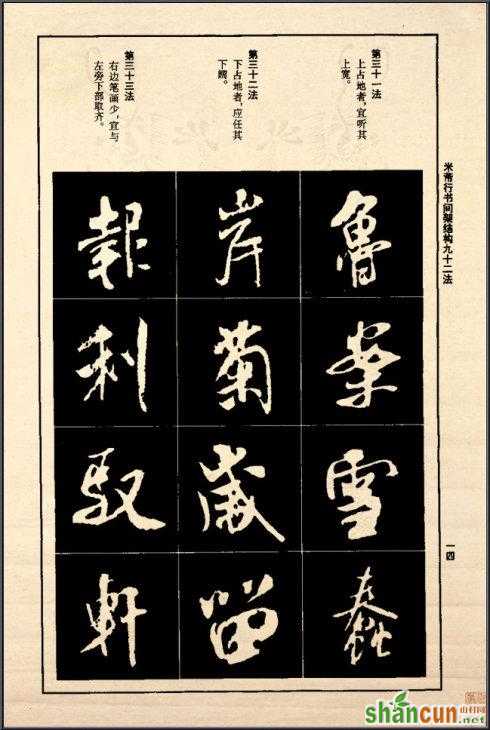 米芾行书间架结构九十二法
第三十一法
上占地者,宜听其
上宽。
魯案雪蠢
第三十二法
下占地者,应任其
下阔。
岸菊歲留
第三十三法
右边笔画少,宜与
左旁下部取齐。
報利馭軒
一四
shancun
山村网
.net